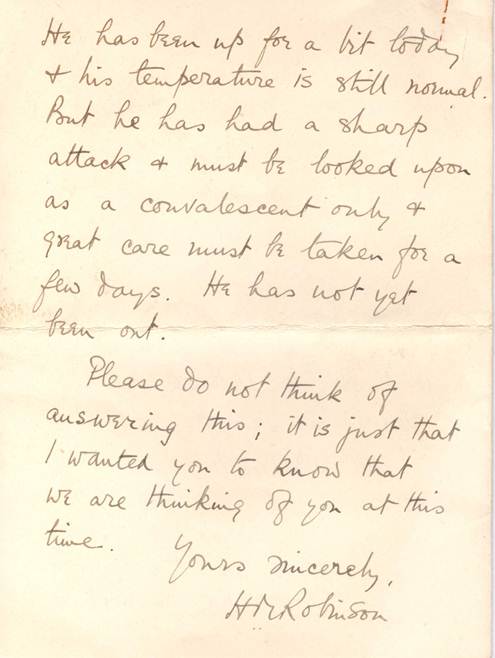 He has been up for a bit today
& his temperature is still normal.
But he has had a sharp
attack & must be looked upon
as a convalescent only &
great care must be taken for a
few days. He has not yet
been out.
Please do not think of
answering this; it is just that
I wanted you to know that
we are thinking of you at this
time. Yours sincerely,
Robinson